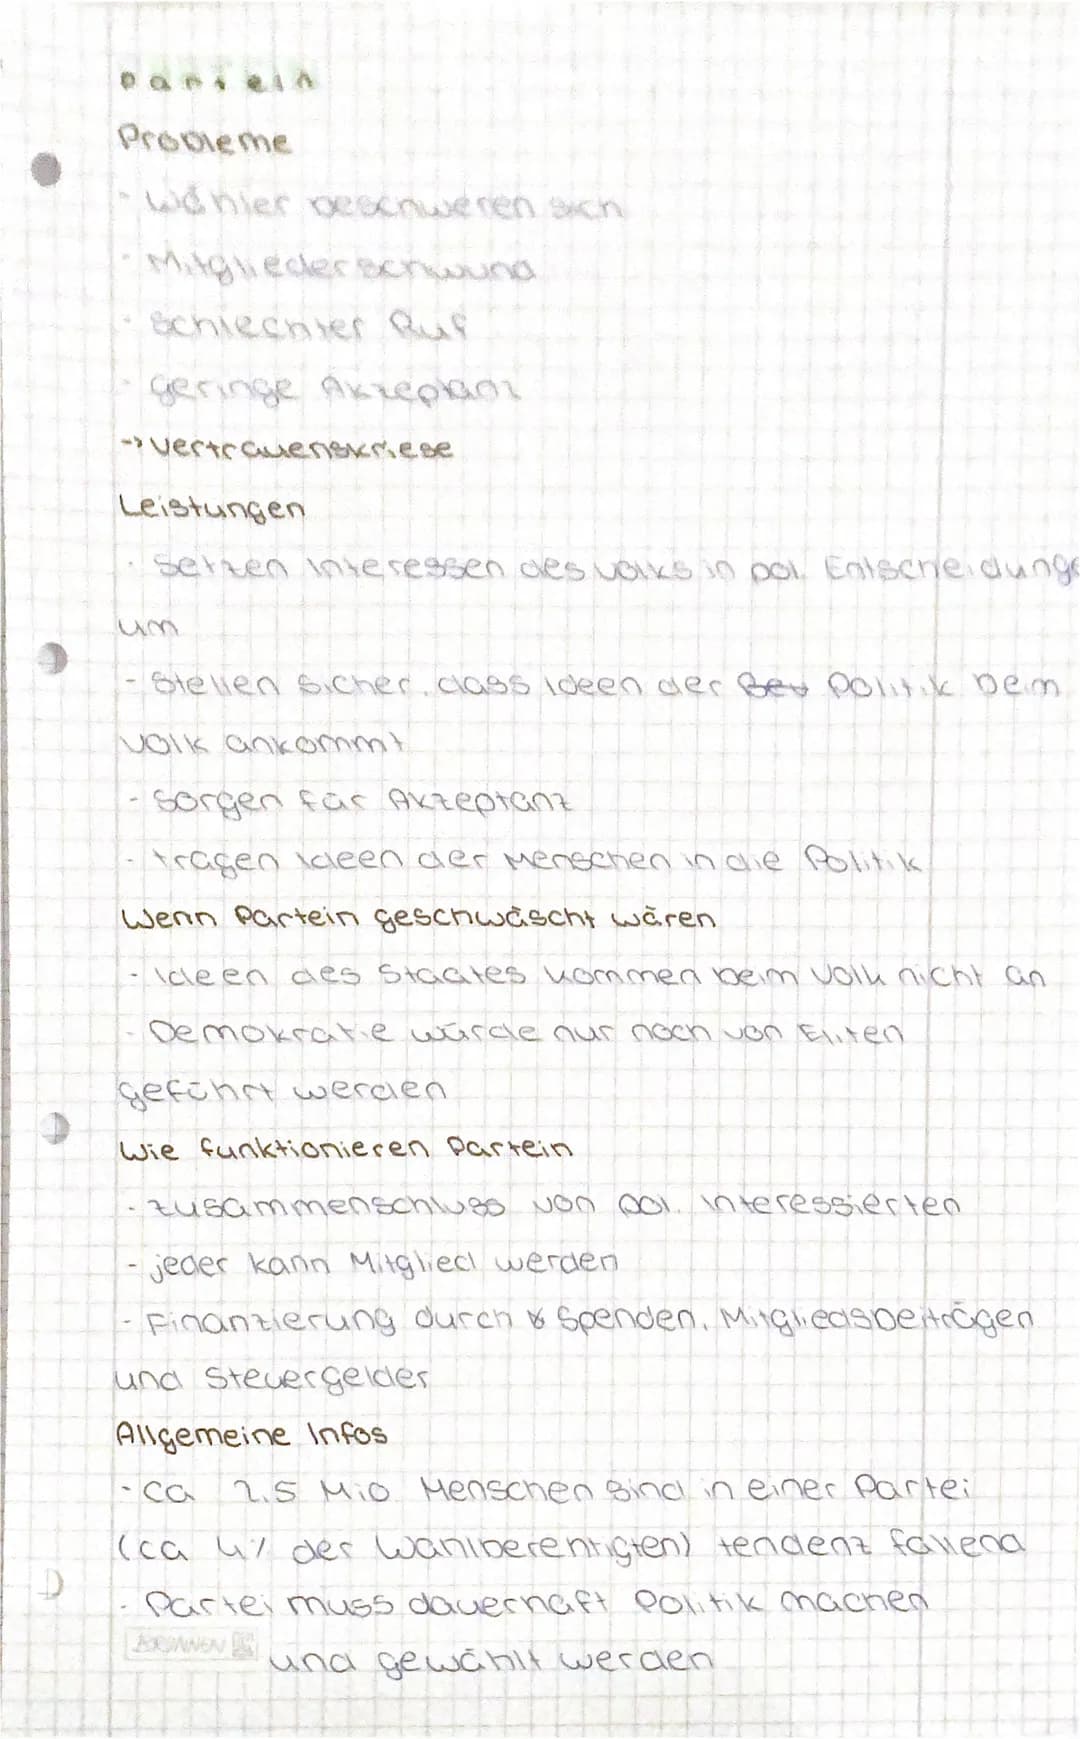 Partein
Probleme
- Wähler beschweren sich
- Mitgliederschwund
- schlechter Ruf
- geringe Akzeptanz
-> Vertrauenskriese
Leistungen
- Setzen Interessen des Volks in pol. Entscheidunge
um
- Stellen sicher, dass Ideen der Bev Politik beim
Volk ankommt
- Sorgen für Akzeptanz
- tragen Ideen der Menschen in die Politik
Wenn Partein geschwäscht wären
- Ideen des Staates kommen beim Volk nicht an
- Demokratie würde nur noch von Eliten
geführt werden
Wie funktionieren Partein
- Zusammenschluss von pol. Interessierten
- jeder kann Mitglied werden
- Finanzierung durch Spenden, Mitgliedsbeiträgen
und Steuergelder
Allgemeine Infos
- ca 2.5 Mio Menschen sind in einer Partei
(ca 4% der Wahlberentigten) tendenz fallend
- Partei muss dauerhaft Politik machen
und gewählt werden